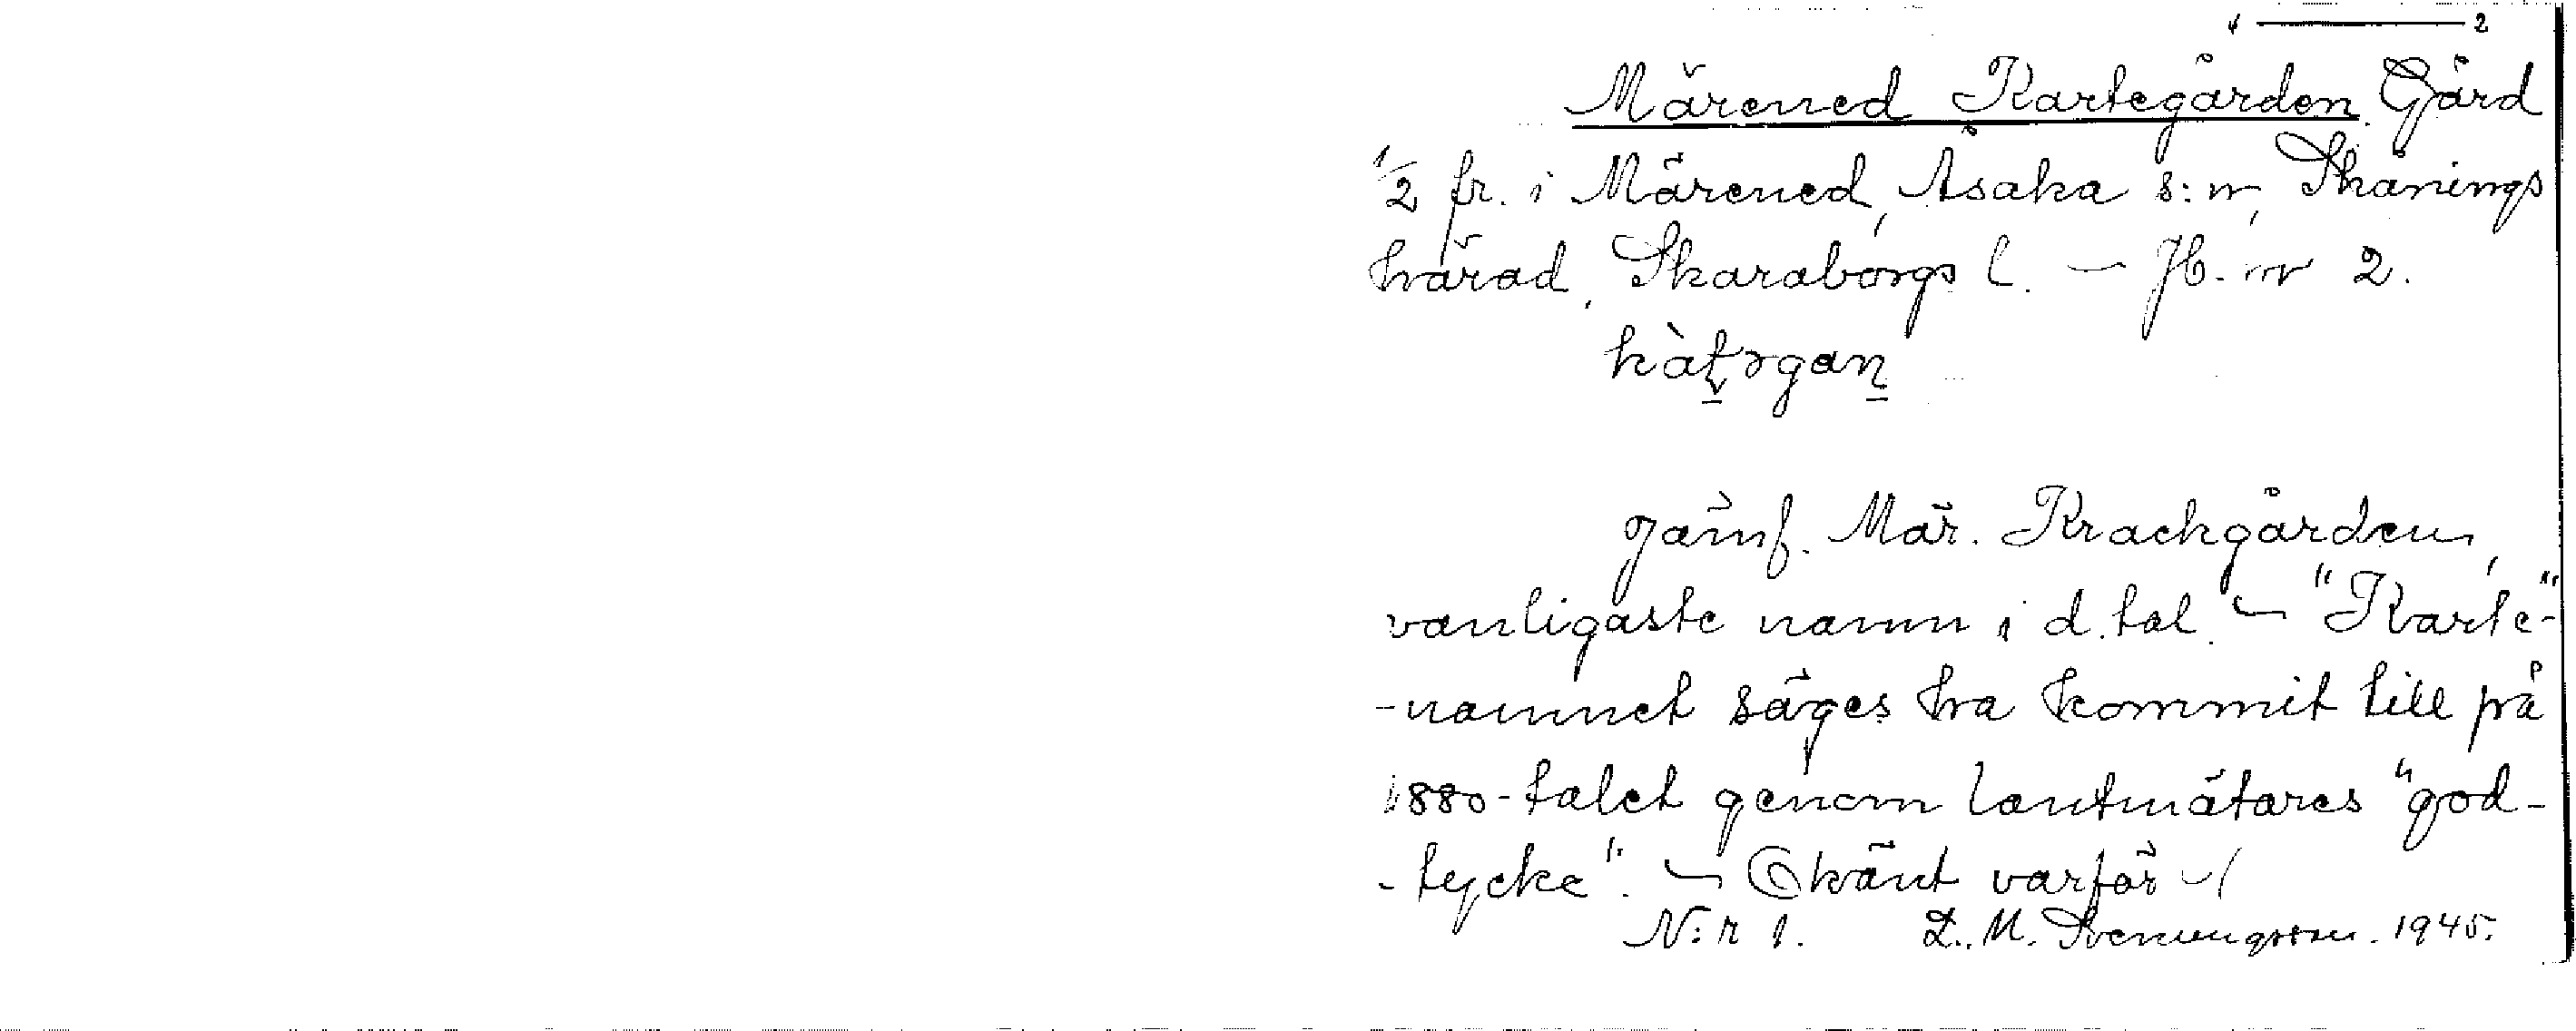 4 — 2
Märened Kartegården. Gård
1/2 fr. i Märened, Åsaka s:n, Skånings
härad, Skaraborgs l. — Jb. nr 2.
kàt̬əgan̠
Jämf. Mär. Krackgården,
vanligaste namn i d. tal. — "Karte-"
-namnet säges ha kommit till på
1880-talet genom lantmätares "god-
-tycke". — Okänt varför —/
N:r 1. L. M. Svenungsson. 1945.